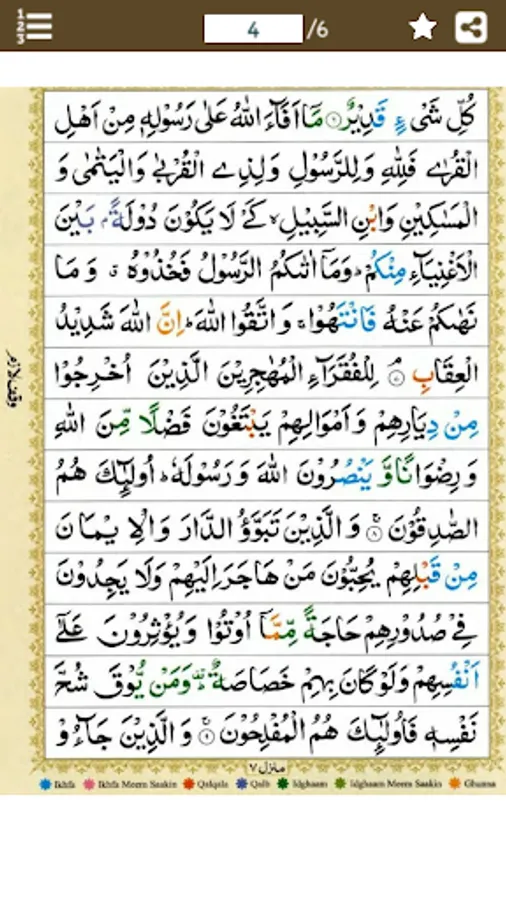 4 /6
كُلِّ شَیْءٍ قَدِیْرٌ۝۶ مَاۤ اَفَآءَ اللّٰهُ عَلٰی رَسُوْلِهٖ مِنْ اَهْلِ
الْقُرٰی فَلِلّٰهِ وَلِلرَّسُوْلِ وَلِذِی الْقُرْبٰی وَالْیَتٰمٰی وَ
الْمَسٰكِیْنِ وَابْنِ السَّبِیْلِ ۙ كَیْ لَا یَكُوْنَ دُوْلَةًۢ بَیْنَ
الْاَغْنِیَآءِ مِنْكُمْ ؕ وَمَاۤ اٰتٰىكُمُ الرَّسُوْلُ فَخُذُوْهُ ۗ وَمَا
نَهٰىكُمْ عَنْهُ فَانْتَهُوْا ۚ وَاتَّقُوا اللّٰهَ ؕ اِنَّ اللّٰهَ شَدِیْدُ
الْعِقَابِ ۘ۝۷ لِلْفُقَرَآءِ الْمُهٰجِرِیْنَ الَّذِیْنَ اُخْرِجُوْا
وقف لازم
مِنْ دِیَارِهِمْ وَاَمْوَالِهِمْ یَبْتَغُوْنَ فَضْلًا مِّنَ اللّٰهِ
وَرِضْوَانًا وَّیَنْصُرُوْنَ اللّٰهَ وَرَسُوْلَهٗ ؕ اُولٰٓىِٕكَ هُمُ
الصّٰدِقُوْنَ ۝۸ وَالَّذِیْنَ تَبَوَّؤُ الدَّارَ وَالْاِیْمَانَ
مِنْ قَبْلِهِمْ یُحِبُّوْنَ مَنْ هَاجَرَ اِلَیْهِمْ وَلَا یَجِدُوْنَ
فِیْ صُدُوْرِهِمْ حَاجَةً مِّمَّاۤ اُوْتُوْا وَیُؤْثِرُوْنَ عَلٰۤی
اَنْفُسِهِمْ وَلَوْ كَانَ بِهِمْ خَصَاصَةٌ ۫ؕ وَمَنْ یُّوْقَ شُحَّ
نَفْسِهٖ فَاُولٰٓىِٕكَ هُمُ الْمُفْلِحُوْنَ ۝۹ وَالَّذِیْنَ جَآءُوْ
منزل ۷
Ikhfa Ikhfa Meem Saakin Qalqala Qalb Idghaam Idghaam Meem Saakin Ghunna